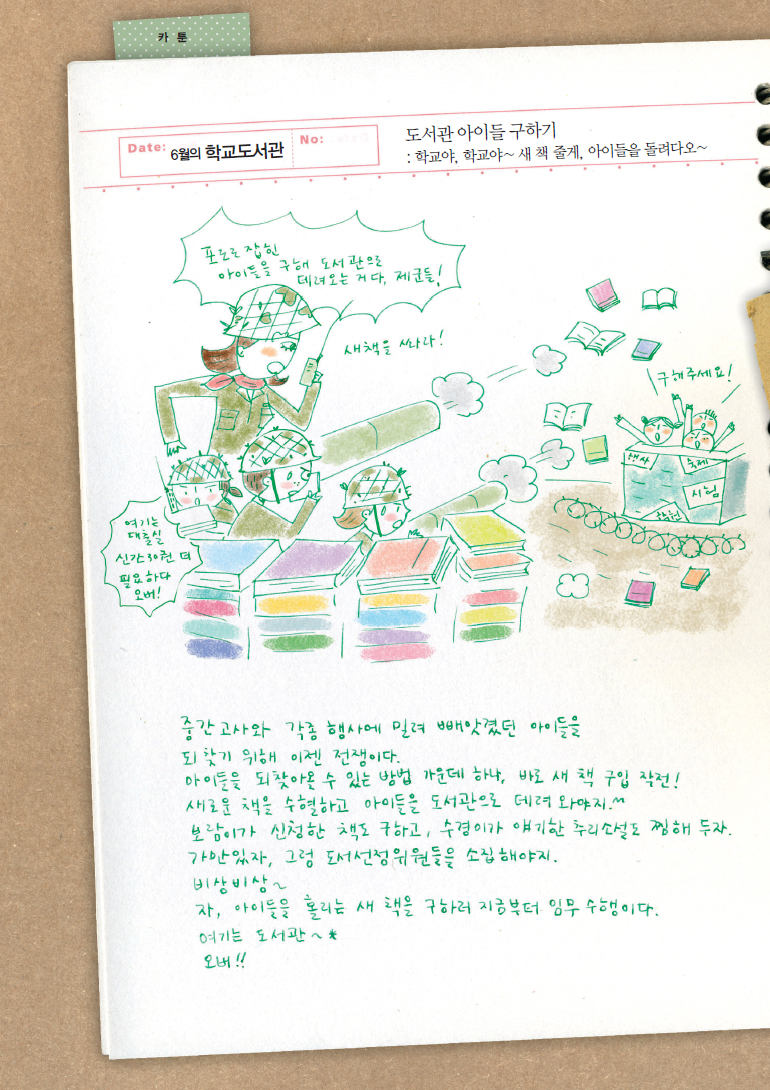 카 툰
Date: 6월의 학교도서관 No:
도서관 아이들 구하기
: 학교야, 학교야~ 새 책 줄게, 아이들을 돌려다오~
포로로 잡힌
아이들을 구해 도서관으로
데려오는 거다, 제군들!
새책을 쏴라!
구해주세요!
행사
축제
시험
여기는
대출실
신간 30권 더
필요하다
오버!
중간고사와 각종 행사에 밀려 빼앗겼던 아이들을
되찾기 위해 이젠 전쟁이다.
아이들을 되찾아올 수 있는 방법 가운데 하나, 바로 새 책 구입 작전!
새로운 책을 수혈하고 아이들을 도서관으로 데려 와야지.^^
보람이가 신청한 책도 구하고, 수경이가 얘기한 추리소설도 찜해 두자.
가만있자, 그럼 도서선정위원들을 소집해야지.
비상비상~
자, 아이들을 홀리는 새 책을 구하러 지금부터 임무 수행이다.
여기는 도서관~*
오버!!